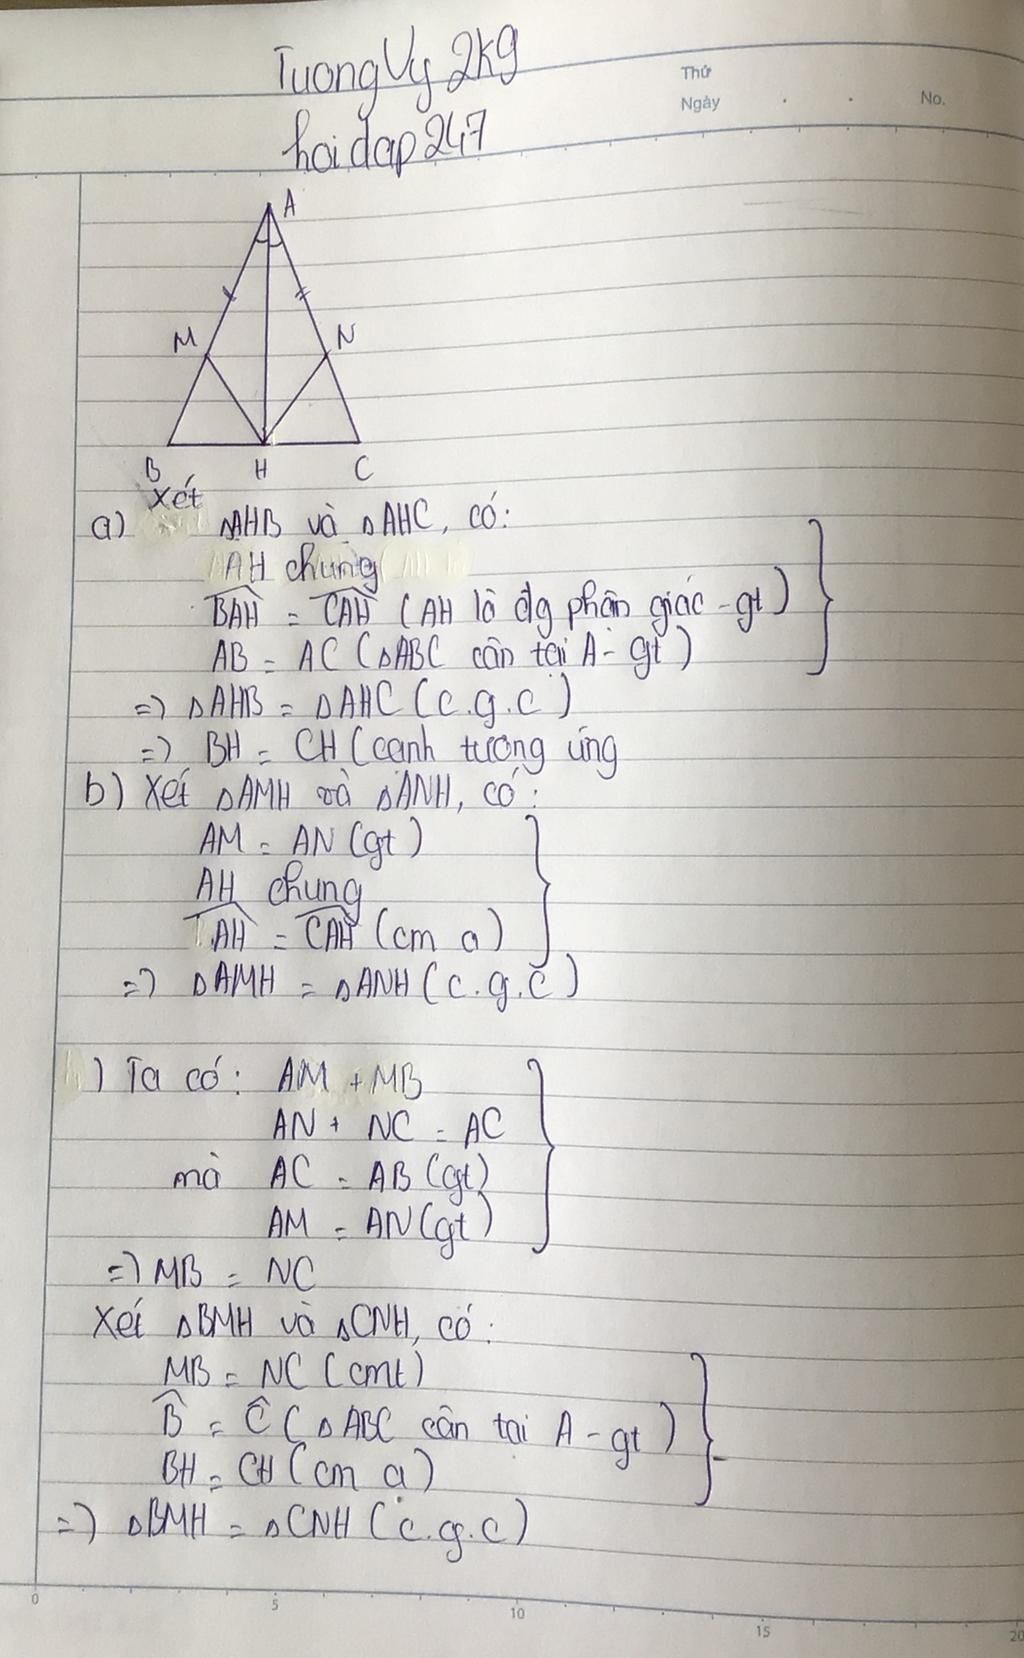 TuongVy2k9
hoidap247
Thứ
Ngày . . No.
A
M N
B H C
Xét
a) ΔAHB và ΔAHC, có:
AH chung
BAH = CAH (AH là đg phân giác - gt)
AB = AC (ΔABC cân tại A - gt)
=> ΔAHB = ΔAHC (c.g.c)
=> BH = CH (cạnh tương ứng
b) Xét ΔAMH và ΔANH, có:
AM = AN (gt)
AH chung
AH = CAH (cm a)
=> ΔAMH = ΔANH (c.g.c)
) Ta có: AM + MB
AN + NC = AC
mà AC = AB (gt)
AM = AN (gt)
=> MB = NC
Xét ΔBMH và ΔCNH, có:
MB = NC (cmt)
B̂ = Ĉ (ΔABC cân tại A - gt)
BH = CH (cm a)
=> ΔBMH = ΔCNH (c.g.c)
0 5 10 15 20